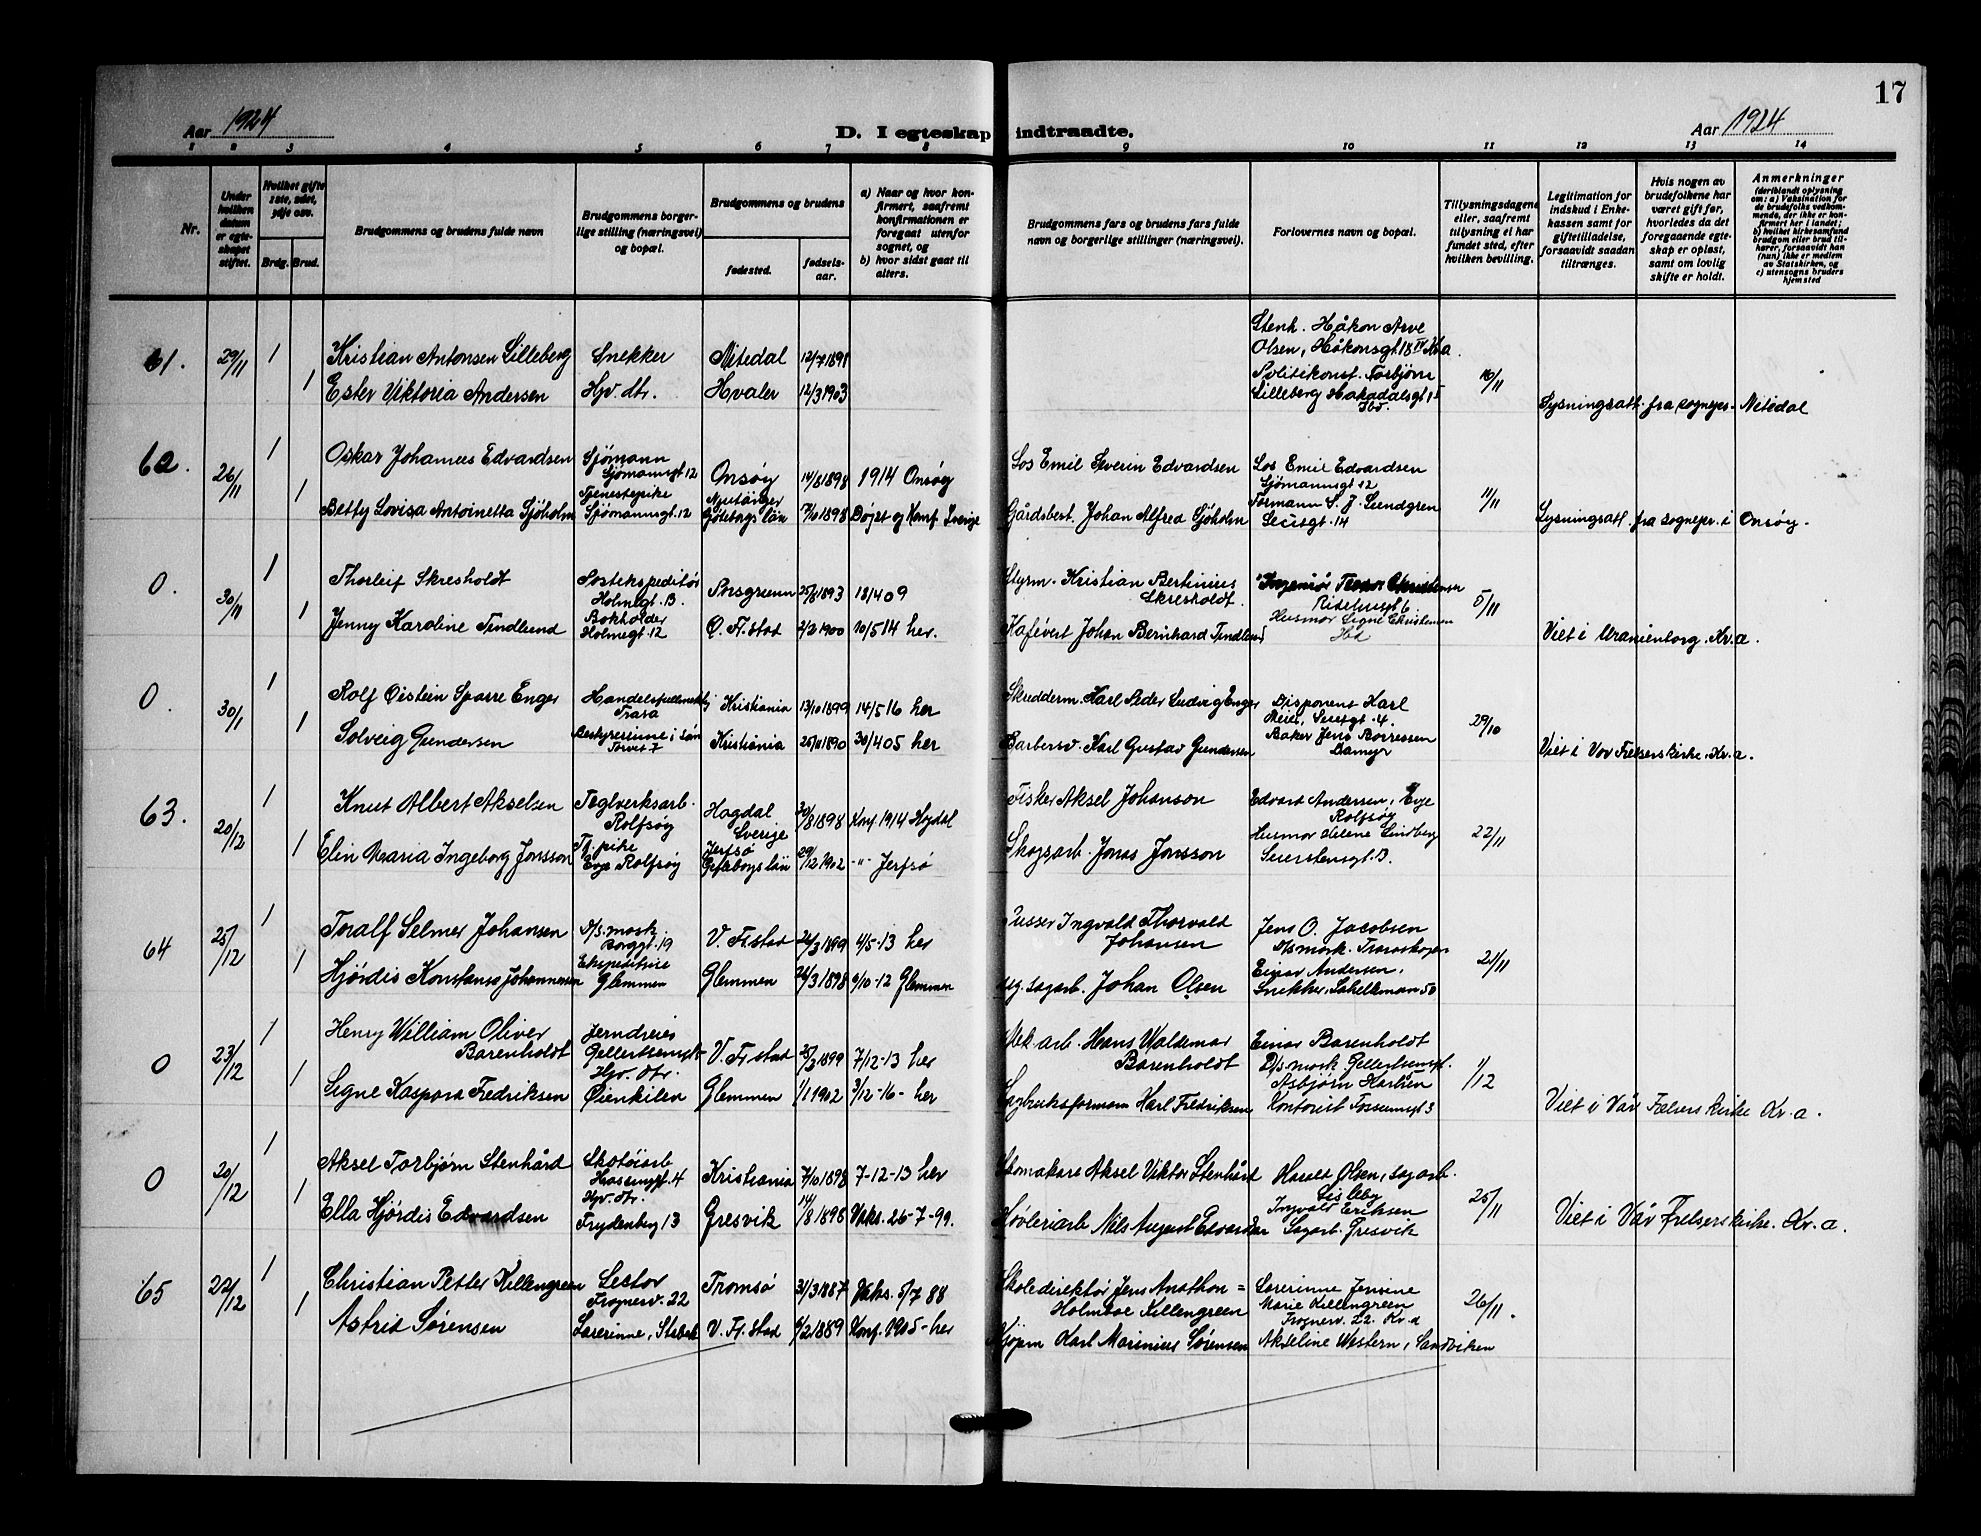 17
Aar 1924
D. I egteskap indtraadte.
Aar 1924
1 2 3 4 5 6 7 8 9 10 11 12 13 14
Nr.
Under
hvilken
datum
er egte-
skapet
stiftet.
Hvilket gifte
1ste, 2det,
3dje osv.
Brdg. Brud.
Brudgommens og brudens fulde navn
Brudgommens borger-
lige stilling (næringsvei)
og bopæl.
Brudgommens og brudens
fødested.
fødsels-
aar.
a) Naar og hvor kon-
firmert, saafremt
konfirmationen er
foregaat utenfor
sognet, og
b) hvor sidst gaat til
alters.
Brudgommens fars og brudens fars fulde
navn og borgerlige stillinger (næringsvei).
Forlovernes navn og bopæl.
Tillysningsdagene
eller, saafremt
tillysning ei har
fundet sted, efter
hvilken bevilling.
Legitimation for
indskud i Enke-
kassen samt for
giftetilladelse,
forsaavidt saadan
tiltrænges.
Hvis nogen av
brudefolkene har
været gift før,
hvorledes da det
foregaaende egte-
skap er opløst,
samt om lovlig
skifte er holdt.
Anmerkninger
(deriblandt oplysning
om: a) Vaksination for
de brudefolks vedkom-
mende, der ikke er kon-
firmert her i landet;
b) hvilket kirkesamfund
brudgom eller brud til-
hører, forsaavidt han
(hun) ikke er medlem
av Statskirken, og
c) utensogns bruders
hjemsted
61. 29/11 1 Kristian Antonsen Lilleberg Snekker Nitedal 12/7 1891
1 Ester Viktoria Andersen Hpv. dtr. Hvaler 12/3 1903
Stenh. Håkon Arve
Olsen, Håkonsgt. 18 IV Kr.a.
Politikonst. Torbjørn
Lilleberg Hakadalsgt 15
16/11
Lysningsatt. fra sognepr. Nitedal
62. 26/11 1 Oskar Johannes Edvardsen Sjømann
Sjømannsgt. 12 Onsøy 14/8 1898 1914 Onsøy
1 Betty Lovisa Antoinetta Sjöholm Tjenestepike
Sjømannsgt. 12 Njutånger
Göteborgs län 7/10 1898 Døpt og Konf. Sverige
Los Emil Severin Edvardsen
Gårdsbest. Johan Alfred Sjöholm
Los Emil Edvardsen
Sjømannsgt 12
Formann S. J. Lundgren
14
11/11
Lysningsatt. fra sognepr. i Onsøy.
0. 30/11 1 Thorleif Skresholdt Postekspeditør
Holmegt. 13. Porsgrunn 25/8 1893 18/4 09
1 Jenny Karoline Tindlund Bokholder
Holmegt. 12 Ø. Fr.stad 2/2 1900 10/5 14 her.
Styrm. Kristian Bertinius
Skresholdt.
Kafévert Johan Bernhard Tindlund
Ingeniør Christensen
Husmor Signe Christensen
Ibd
5/11
Viet i Uranienborg. Kr.a.
0. 30/1 1 Rolf Øistein Sparre Enger Handelsfullmektig
Trara Kristiania 13/10 1899 14/5 16 her
1 Solveig Gundersen Bestyrerinne
Kristiania 25/11 1890 30/4 05 her
Skredderm. Karl Peder Ludvig Enger
Barbersv. Karl Gustav Gundersen
Disponent Karl
4.
Baker Jens Borressen
Damyr
29/10
Viet i Vor Frelsers kirke. Kr.a.
63. 20/12 1 Knut Albert Akselsen Teglverksarb.
Rolfsøy Hogdal
Sverige 30/8 1898 Konf. 1914 Hogdal
1 Elin Maria Ingeborg Jonsson Tj. pike
Evje Rolfsøy Jerfsø
Gefleborgs län 29/12 1902 -"- Jerfsø
Fisker Aksel Johanson
Skogsarb. Jonas Jonsson
Edvard Andersen, Evje
Rolfsøy
Husmor Helene Lindberg
Seierstensgt. 13.
22/11
64 25/12 1 Toralf Selmer Johansen D/s. mask.
Borggt. 19 V. Fr.stad 26/3 1899 4/5-13 her
1 Hjørdis Konstanse Johannesen Ekspeditrise
Glemmen Glemmen 26/3 1898 6/10-12 Glemmen
Pusser Ingvald Thorvald
Johansen
sagarb. Johan Olsen
Jens O. Jacobsen
D/s mask. Traraskogen
Einar Andersen,
Snekker, 50
21/11
0 23/12 1 Henry William Oliver
Barenholdt Jerndreier
V. Fr.stad 25/2 1899 7/12-13 her
1 Signe Kaspara Fredriksen Hpv. dtr.
Øienkilen Glemmen 1/1 1902 3/12-16- her
Mek arb. Hans Waldemar
Barenholdt
Sagbruksformann Karl Fredriksen
Einar Barenholdt
D/s mask
Asbjørn Karlsen
Kontorist 3
1/12
Viet i Vår Frelsers kirke Kr.a.
0 20/12 1 Aksel Torbjørn Stenhård Skotøiarb
Kristiania 7/10 1898 7-12-13 her
1 Ella Hjørdis Edvardsen Hpv. dtr.
Frydenberg 13 Gresvik 14/8 1898 Vaks. 26-7-99.
Skomakare Aksel Viktor Stenhård
Høvleriarb Nils August Edvardsen
Harald Olsen, sagarb.
Lisleby
Ingvald Eriksen
Sagarb. Gresvik
25/11
Viet i Vår Frelsers kirke. Kr.a.
65 22/12 1 Christian Petter Killengreen Lektor
Frognerv. 22 Tromsø 31/3 1887 Vaks. 5/7 88
1 Astrid Sørensen Lærerinne, Stabæk V. Fr.stad 6/2 1889 Konf. 1905- her
Skoledirektør Jens Anathon =
Holmboe Killengreen
Kjøpm Karl Marinius Sørensen
Lærerinne Jensine
Marie Killengreen
Frognerv. 22. Kr.a
Akseline Western, Sandviken
26/11.